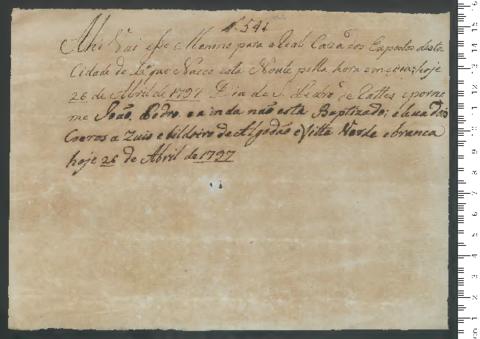 541
Ahi Vai esse Menino para a Real Caza dos Expostos desta
Cidade de Lxª que Naceo esta Noute pella hora hoje
26 de Abril de 1797. Dia de S. e por no
me João, Pedro, e ainda não esta Baptizado;
Coeros Azuis e de Algodão e fitta Verde e branca
hoje 26 de Abril de 1797